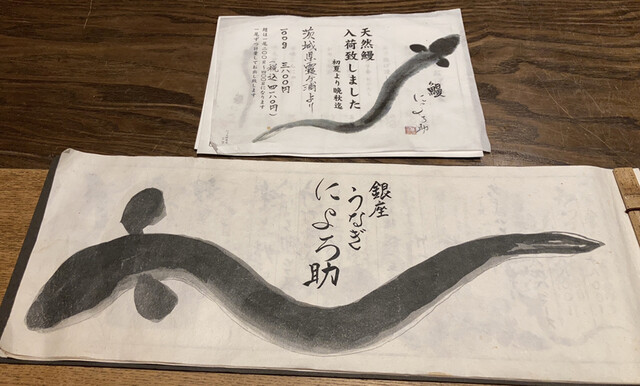 天然鰻
入荷致しました
初夏より晩秋迄
茨城県霞ヶ浦より
100g 三八〇〇円
(税込四一八〇円)
鰻
にょろ助
銀座
うなぎ
にょろ助